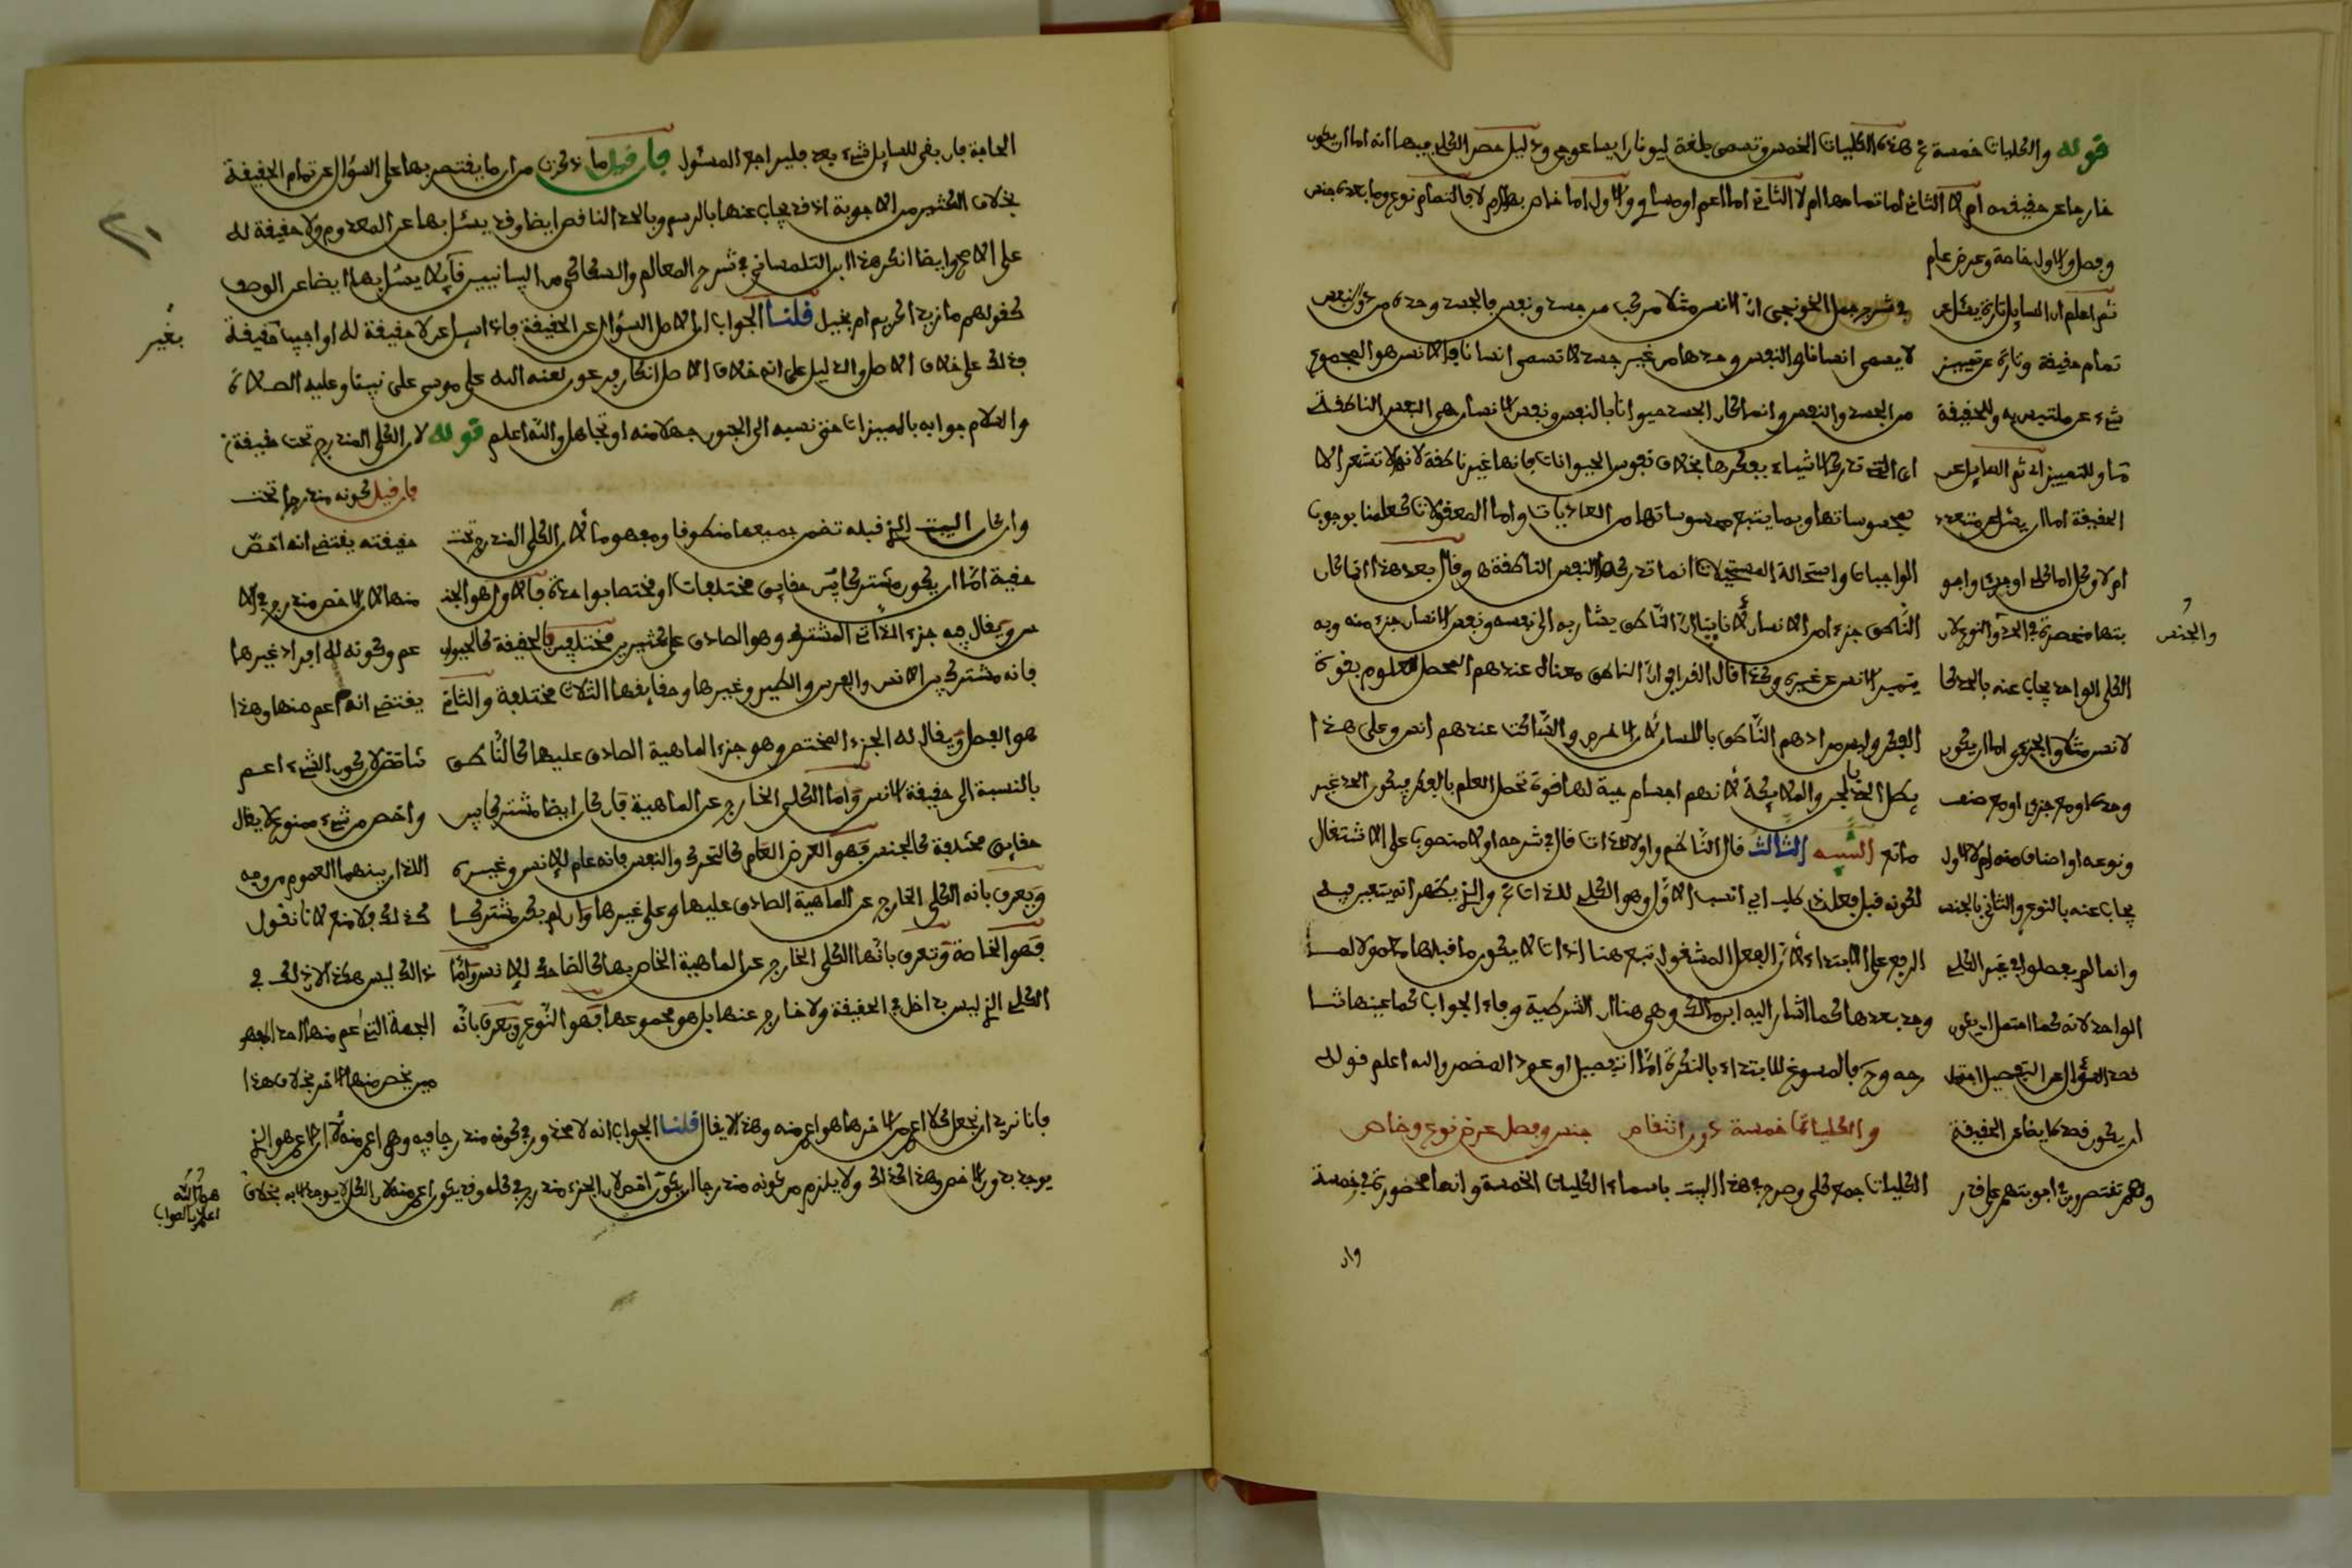 قوله والكليات خمسة هذه الكليات الخمس وتسمى بلغة اليونان ايساغوجي ودليل حصر الكلي فيها انه اما ان يكون
خارجا عن حقيقته ام لا الثاني اما تمامها ام لا الثاني اما اعم او مساو والاول اما خاص بها ام لا فالتمام نوع وما بعده جنس
وفصل والاول خاصة وعرض عام
ثم اعلم ان السايل تارة يسئل عن
تمام حقيقة وتارة عن تمييز
شيء عن ملتبس به وللحقيقة
ما وللتمييز اي ثم السايل عن
الحقيقة اما ان يسئل عن متعدد
ام لا وكل اما كلي او جزئي واجو
بتها منحصرة في الحد والنوع لان
والجنس
الكلي الواحد يجاب عنه بالحد كا
لانس مثلا والجزئي اما ان يكون
وحده او مع جزئي او مع صنف
ونوعه او اضاف منه ام لا الاول
يجاب عنه بالنوع والثاني بالجنس
وانما لم يفصلوا في غير الكلي
الواحد لانه كما احتمل ان يكون
قصد السؤال عن التفصيل احتمل
ان يكون قصد ايضا عن الحقيقة
وهم تقتصرون في اجوبتهم على قدر
في شرح جمل الخونجي ان الانس مثلا مركب من جسد ونفس فالجسد وحده من دون نفس
لا يسمى انسانا والنفس وحدها من غير جسد لا تسمى انسانا فالانس هو المجموع
من الجسد والنفس وانما كان الجسد حيوانا بالنفس ونفس الانسان هي النفس الناطقة
اي التي تدرك الاشياء بفكرها بخلاف نفوس الحيوانات فانها غير ناطقة لانها لا تشعر الا
بمحسوساتها وبما يتبع محسوساتها من العاديات واما المعقولات كعلمنا بوجوب
الواجبات واستحالة المستحيلات انما تدركها النفس الناطقة وقال بعد هذا انما كان
الناطق جزءا من الانسان لانا بينا ان الناطق يشار به الى نفسه ونفس الانسان جزء منه وبه
يتميز الانس عن غيره وكذا قال القرافي ان الناطق معناه عندهم المحصل للعلوم بقوة
الفكر وليس مرادهم الناطق باللسان لان الاخرس والساكت عندهم انس وعلى هذا
يبطل الحد بالجن والملائكة لانهم اجسام حية لها قوة تحصل العلم بالفكر فيكون الحد غير
مانع التنبيه الثالث قال الناظم واولا للذات قال في شرحه اولا منصوبا على الاشتغال
لكونه قبل فعل ذي طلب اي انسب الاول وهو الكلي للذات والذي يظهر انه يتعين فيه
الرفع على الابتداء لان الفعل المشغول تبع هنا اداة لا يكون ما قبلها معمولا لما
وجد بعدها كما اشار اليه ابن مالك وهي هنا ان الشرطية وفاء الجواب كما عينها شا
رحه وح فالمسوغ للابتداء بالنكرة اما التفصيل او عود المضمر والله اعلم قوله
والكليات خمسة دون انتقاص جنس وفصل عرض نوع وخاص
الكليات جمع كلي وصرح في هذا البيت باسماء الكليات الخمسة وانها محصورة في خمسة
وان
الحاجة فان بقى للسايل شيء بعد فليراجع المسئول فان قيل ما ذكرتم من ان ما يقتصر بها على السؤال عن تمام الحقيقة
بخلاف الكثير من الاجوبة اذ قد يجاب عنها بالرسم وبالحد الناقص ايضا وقد يسئل بها عن المعدوم ولا حقيقة له
على الاصح وايضا انكر هذا ابن التلمساني في شرح المعالم والسكاكي من البيانيين قايلا يسئل بها ايضا عن الوصف
كقولهم ما زيد اكريم ام بخيل قلنا الجواب ان الاصل السؤال عن الحقيقة فاذا سئل عن لا حقيقة له او اجيب بغير حقيقة
فذلك على خلاف الاصل والدليل على انه خلاف الاصل انكار فرعون لعنه الله على موسى على نبينا وعليه الصلاة
والسلام جوابه بالمميزات حتى نسبه الى الجنون جهلا منه او تجاهلا والله اعلم قوله لان الكلي المندرج تحت حقيقة
بغير
وان كان البيت الذي قبله تضمن جميعها منطوقا ومفهوما لان الكلي المندرج تحت
حقيقة اما ان يكون مشتركا بين حقايق مختلفات او مختصا بواحدة فالاول هو الجنـ
ـس ويقال فيه جزء الذاتي المشترك وهو الصادق على كثيرين مختلفين في الحقيقة كالحيوان
فانه مشترك بين الانس والفرس والطير وغيرها وحقايقها الثلاث مختلفة والثاني
هو الفصل ويقال له الجزء المختص وهو جزء الماهية الصادق عليها كالناطق
بالنسبة الى حقيقة الانس واما الكلي الخارج عن الماهية فان كان ايضا مشتركا بين
حقايق مختلفة كالجنس فهو العرض العام كالتحرك والتنفس فانه عام للانس وغيره
ويعرف بانه الكلي الخارج عن الماهية الصادق عليها وعلى غيرها وان لم يكن مشتركا
فهو الخاصة وتعرف بانها الكلي الخارج عن الماهية الخاص بها كالضاحك للانس واما
الكلي الذي ليس بداخل في الحقيقة ولا خارج عنها بل هو مجموعها فهو النوع ويعرف بانه
فان قيل كونه مندرجا تحت
حقيقته يقتضي انه اخص
منها لان الاخص مندرج في الا
عم وكونه له افراد غيرها
يقتضي انه اعم منها وهذا
تناقض لان كون الشيء اعم
واخص من شيء ممنوع لا يقال
اللذان بينهما العموم من وجه
كذلك ولا منع لانا نقول
ذلك ليس هكذا لان ذلك في
الجهة التي اعم منها احدهما فهو
فيها يخص منها الاخر بخلاف هذا
فانا نريد ان نجعل كلا اعم من الاخر ما هو اعم منه وهذا لا يقال قلنا الجواب انه لا محذور في كونه مندرجا فيه وهو اعم منه لان الاعم هو الذي
يوجد بدون الاخص وهذا كذلك ولا يلزم من كونه مندرجا ان يكون اخص لان الجزء مندرج في كله وقد يكون اعم منه لان الكل لا يوجد الا به بخلاف
هو والله
اعلم بالصواب